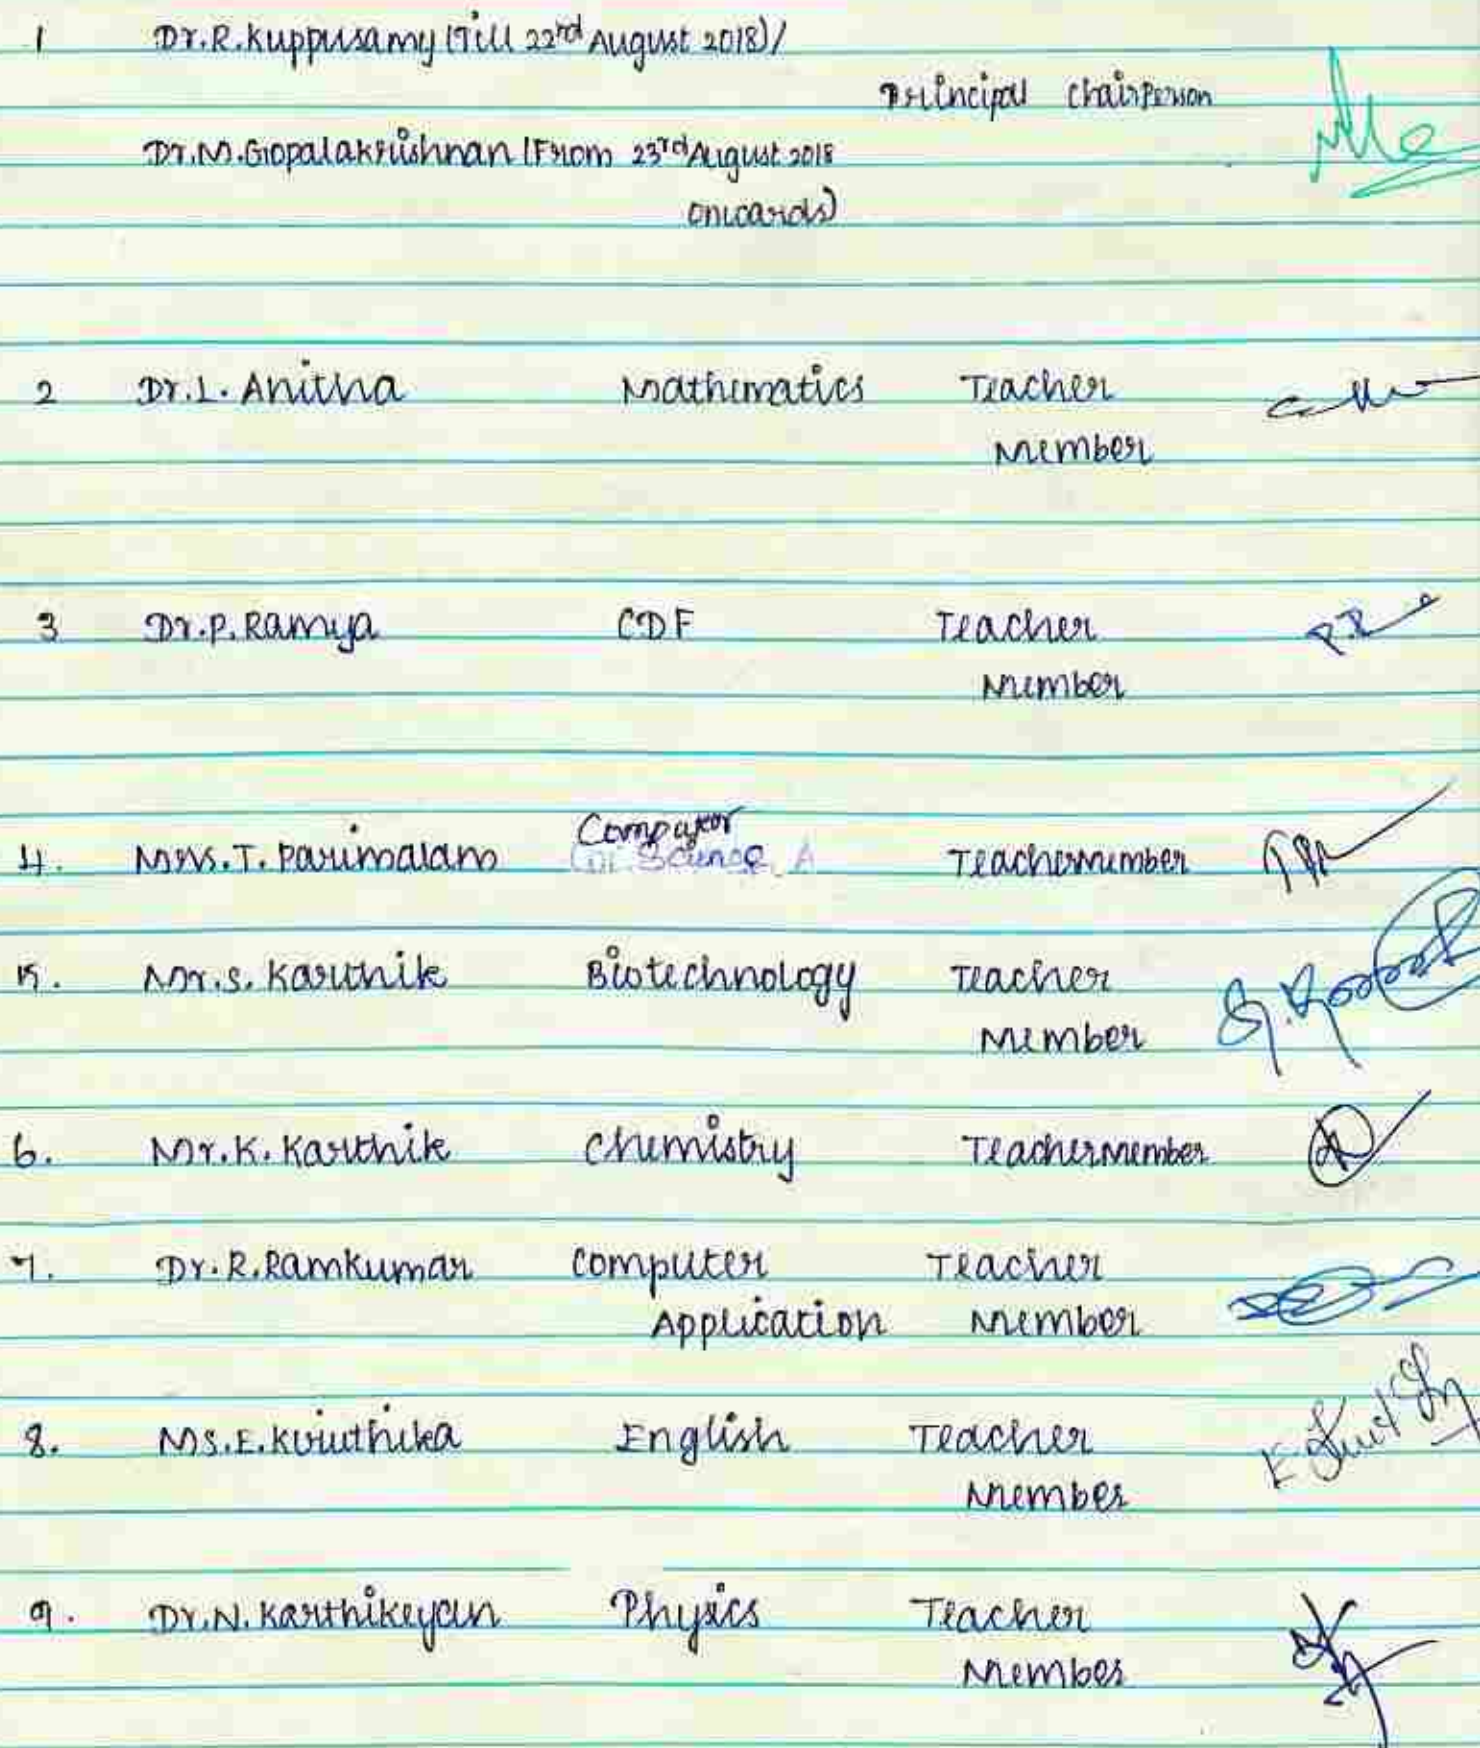 1 Dr.R.Kuppusamy (Till 22rd August 2018)/
Principal Chairperson
Dr.M.Gopalakrishnan (From 23rd August 2018
onwards)
2 Dr.L. Anitha Mathematics Teacher
Member
3 Dr.P. Ramya CDF Teacher
Member
Computer
4. Mrs.T. Parimalam Science Teachermember
5. Mr.S. Karthik Biotechnology Teacher
Member
6. Mr.K. Karthik Chemistry TeacherMember
7. Dr.R.Ramkumar Computer Teacher
Application Member
8. Ms.E.Kiruthika English Teacher
Member
9. Dr.N. Karthikeyan Physics Teacher
Member